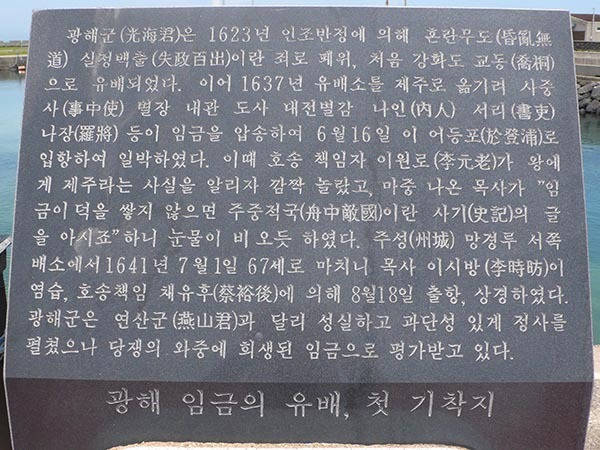 광해군(光海君)은 1623년 인조반정에 의해 혼란무도(昏亂無
道) 실정백출(失政百出)이란 죄로 폐위, 처음 강화도 교동(喬桐)
으로 유배되었다. 이어 1637년 유배소를 제주로 옮기려 사중
사(事中使) 별장 내관 도사 대전별감 나인(內人) 서리(書吏)
나장(羅將) 등이 임금을 압송하여 6월16일 이 어등포(於登浦)로
입항하여 일박하였다. 이때 호송 책임자 이원로(李元老)가 왕에
게 제주라는 사실을 알리자 깜짝 놀랐고, 마중 나온 목사가 "임
금이 덕을 쌓지 않으면 주중적국(舟中敵國)이란 사기(史記)의 글
을 아시죠"하니 눈물이 비 오듯 하였다. 주성(州城) 망경루 서쪽
배소에서 1641년 7월1일 67세로 마치니 목사 이시방(李時昉)이
염습, 호송책임 채유후(蔡裕後)에 의해 8월18일 출항, 상경하였다.
광해군은 연산군(燕山君)과 달리 성실하고 과단성 있게 정사를
펼쳤으나 당쟁의 와중에 희생된 임금으로 평가받고 있다.
광해 임금의 유배, 첫 기착지